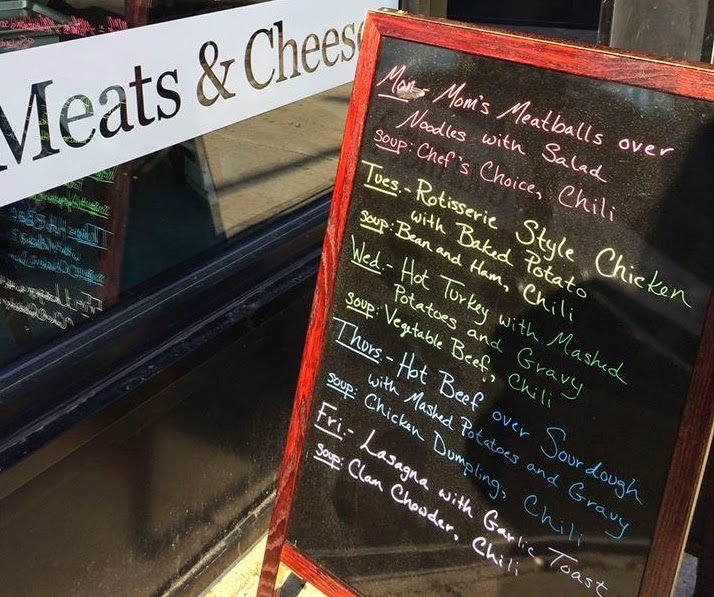 Meats & Cheese
Mon.- Mom's Meatballs over
Noodles with Salad
soup: Chef's Choice, Chili
Tues.- Rotisserie Style Chicken
with Baked Potato
soup: Bean and Ham, Chili
Wed.- Hot Turkey with Mashed
Potatoes and Gravy
soup: Vegetable Beef, Chili
Thurs.- Hot Beef over Sourdough
with Mashed Potatoes and Gravy
soup: Chicken Dumpling, Chili
Fri.- Lasagna with Garlic Toast
soup: Clam Chowder, Chili